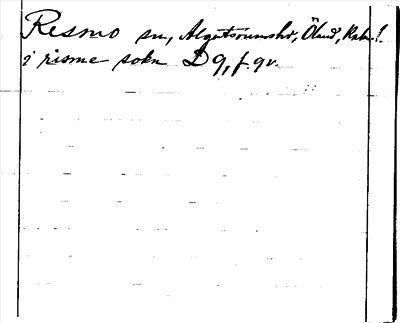 Resmo sn, Algutsrumshd, Öland, Kalm l.
i risme sokn D 9, f. 9v.